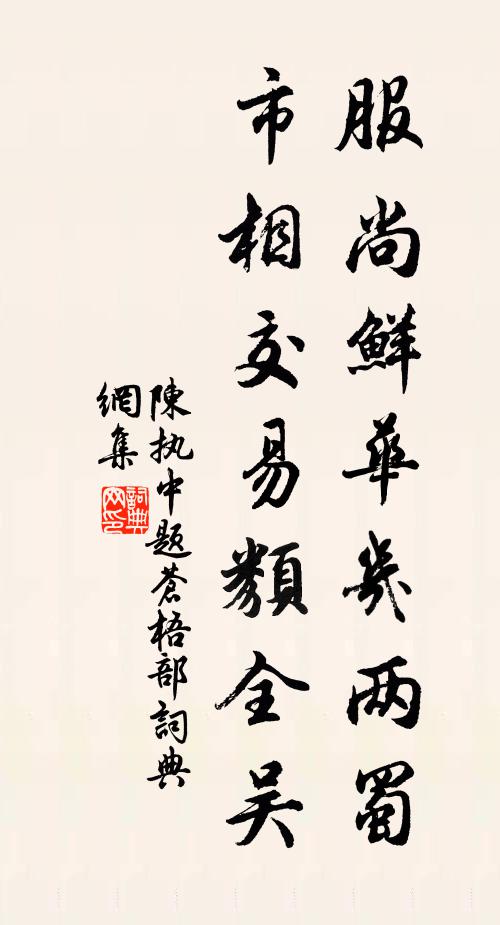 服尚鮮華歲两蜀
市相交易類全吴
陳执中题蒼梧部詞典
網集
詞典网印